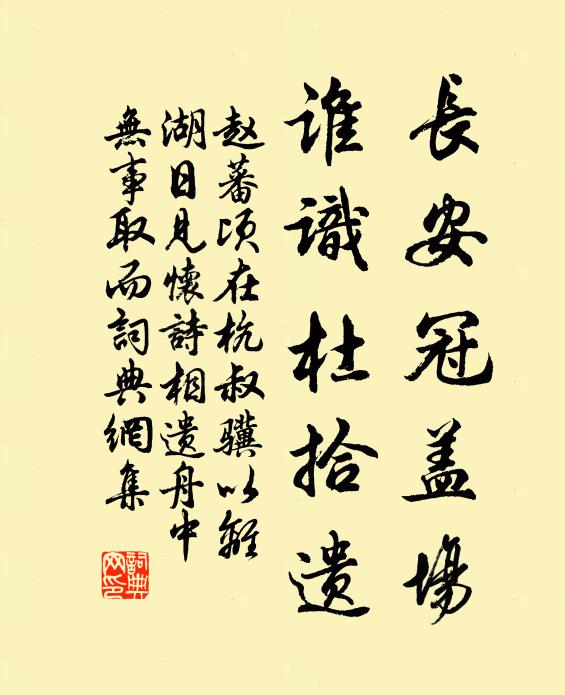 長安冠盖場
誰識杜拾遺
赵蕃顷在杭叔骥以離
湖日見懷詩相遺舟中
無事取而詞典網集
詞典
网印